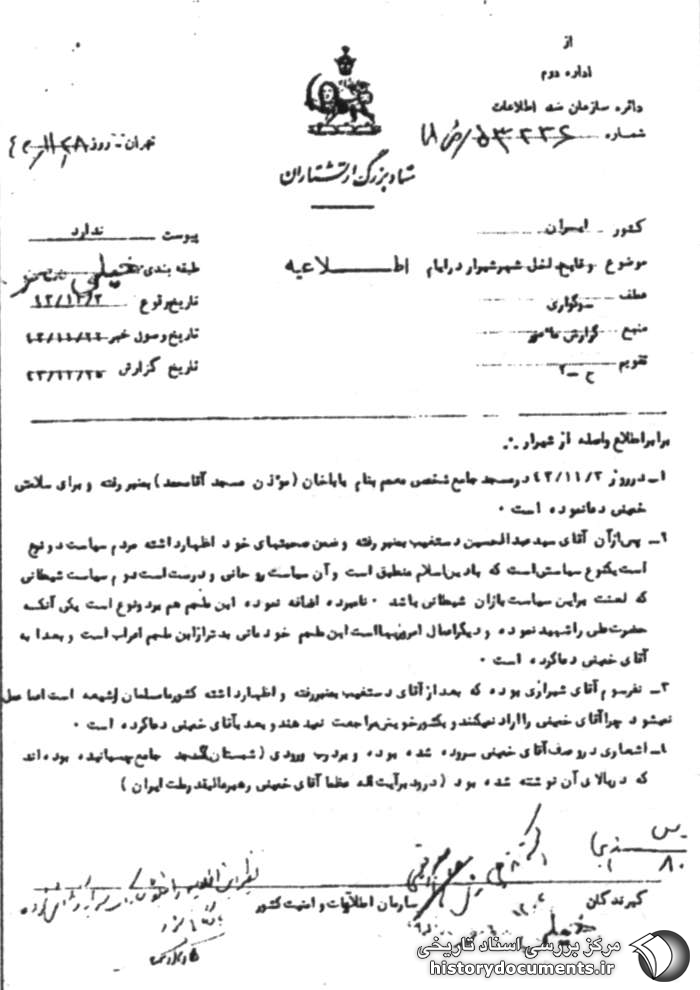 از
اداره دوم
دائره سازمان ضد اطلاعات
شماره
تهران روز
ستاد بزرگ ارتشتاران
کشور ایران
پیوست ندارد
موضوع وقایع داخل شهر شیراز در ایام
اطلاعیه
طبقه بندی خیلی
عطف سوگواری
تاریخ وقوع ۴۲/۱۱/۲
منبع گزارش مامور
تاریخ وصول خبر
تقویم ح-۲
تاریخ گزارش
برابر اطلاع واصله از شیراز :
۱- در روز ۴۲/۱۱/۲ در مسجد جامع شخص معمم بنام باباخان (مؤذن مسجد آقامحمد) بمنبر رفته و برای سلامتی
خمینی دعا نموده است .
۲- پس از آن آقای سید عبدالحسین دستغیب بمنبر رفته و ضمن صحبتهای خود اظهار داشته مردم سیاست دو نوع
است یکنوع سیاستی است که با دین اسلام منطبق است و آن سیاست روحانی و درست است دوم سیاست شیطانی
که لعنت بر این سیاست بازان شیطانی باشد . نامبرده اضافه نموده ابن ملجم هم بر دو نوع است یکی آنکه
حضرت علی را شهید نموده و دیگر اعمال امروزیها است ابن ملجم خودمانی بدتر از ابن ملجم اعراب است و بعدا به
آقای خمینی دعا کرده است .
۳- نفر سوم آقای شیرازی بوده که بعد از آقای دستغیب بمنبر رفته و اظهار داشته کشور ما مسلمان و شیعه است اما عمل
نمیشود چرا آقای خمینی را آزاد نمیکنند و بکشور خویش مراجعت نمیدهند و بعد بآقای خمینی دعا کرده است .
۴- اشعاری در وصف آقای خمینی سروده شده بوده و بر درب ورودی (شبستان) مسجد جامع چسبانیده بوده اند
که در بالای آن نوشته شده بود (درود بر آیت الله عظما آقای خمینی رهبر عالیقدر ملت ایران)
گیرندگان
سازمان اطلاعات و امنیت کشور
مرکز بررسی اسناد تاریخی
historydocuments.ir